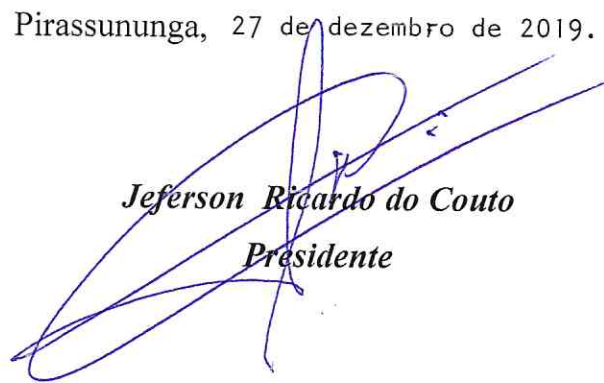 Pirassununga, 27 de dezembro de 2019.
Jeferson Ricardo do Couto
Presidente